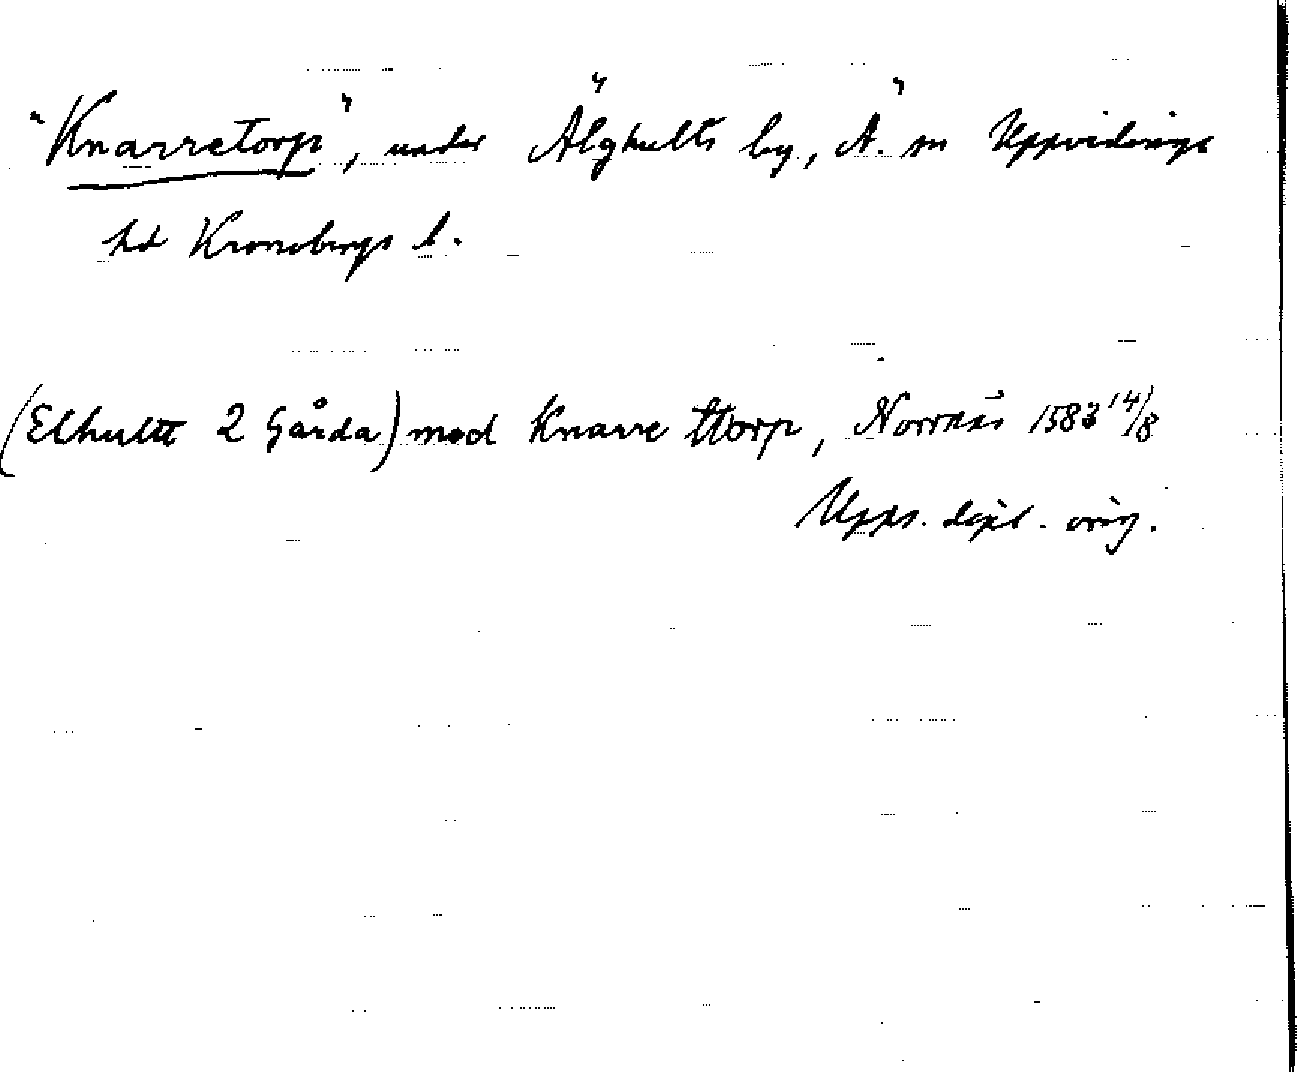 "Knarretorp", under Älghults by, Ä. sn Uppvidinge
hd Kronobergs l.
(Elhultt 2 Gårda) med Knarre ttorp, Norrnäs 1583 14/8
Upps. dipl. orig.